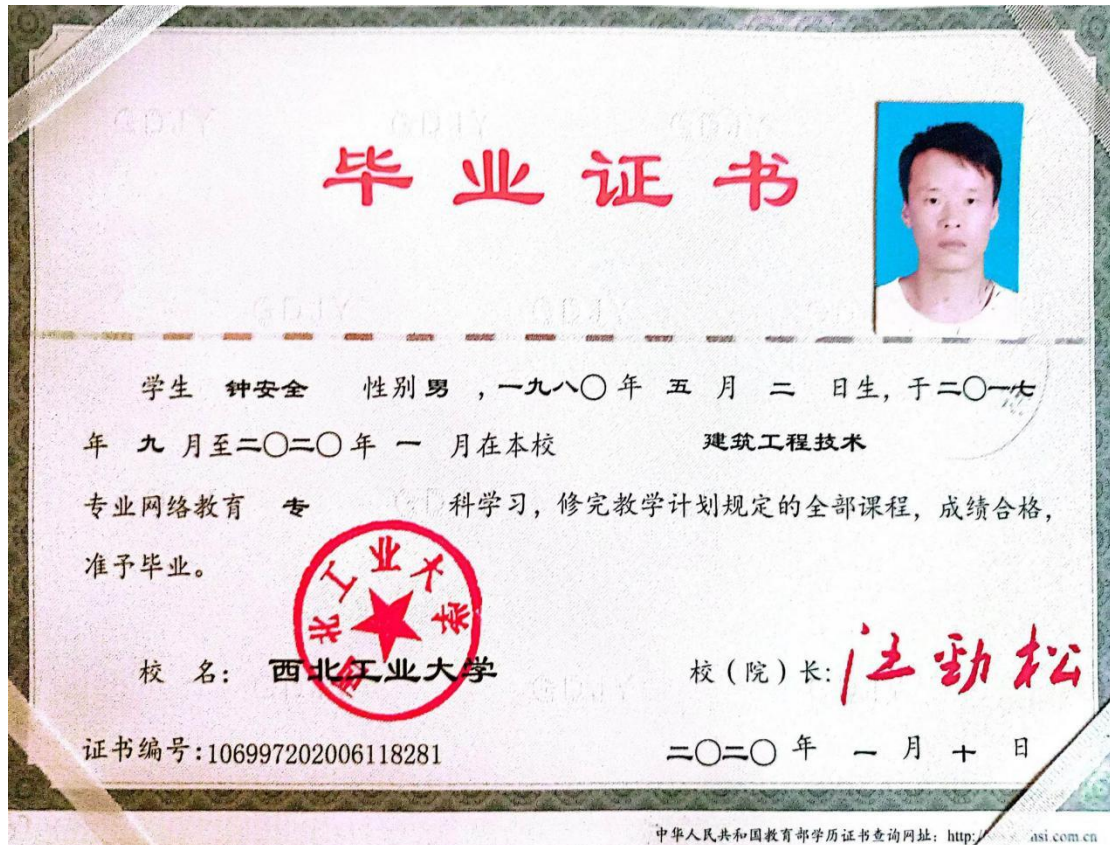 毕业证书
学生 钟安全 性别 男 ，一九八〇年 五 月 二 日生，于二〇一七
年 九 月至二〇二〇年 一 月在本校 建筑工程技术
专业网络教育 专 科学习，修完教学计划规定的全部课程，成绩合格，
准予毕业。
西北工业大学
校 名： 西北工业大学 校（院）长: 汪劲松
证书编号:106997202006118281 二〇二〇 年 一 月 十 日
中华人民共和国教育部学历证书查询网址：http:/ hsi.com.cn